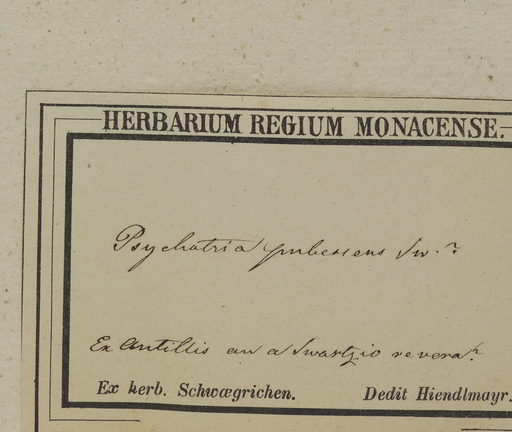 HERBARIUM REGIUM MONACENSE.
Psychotria pubescens Sw. ?
Ex Antillis an a Swartzio revera?
Ex herb. Schwægrichen. Dedit Hiendlmayr.